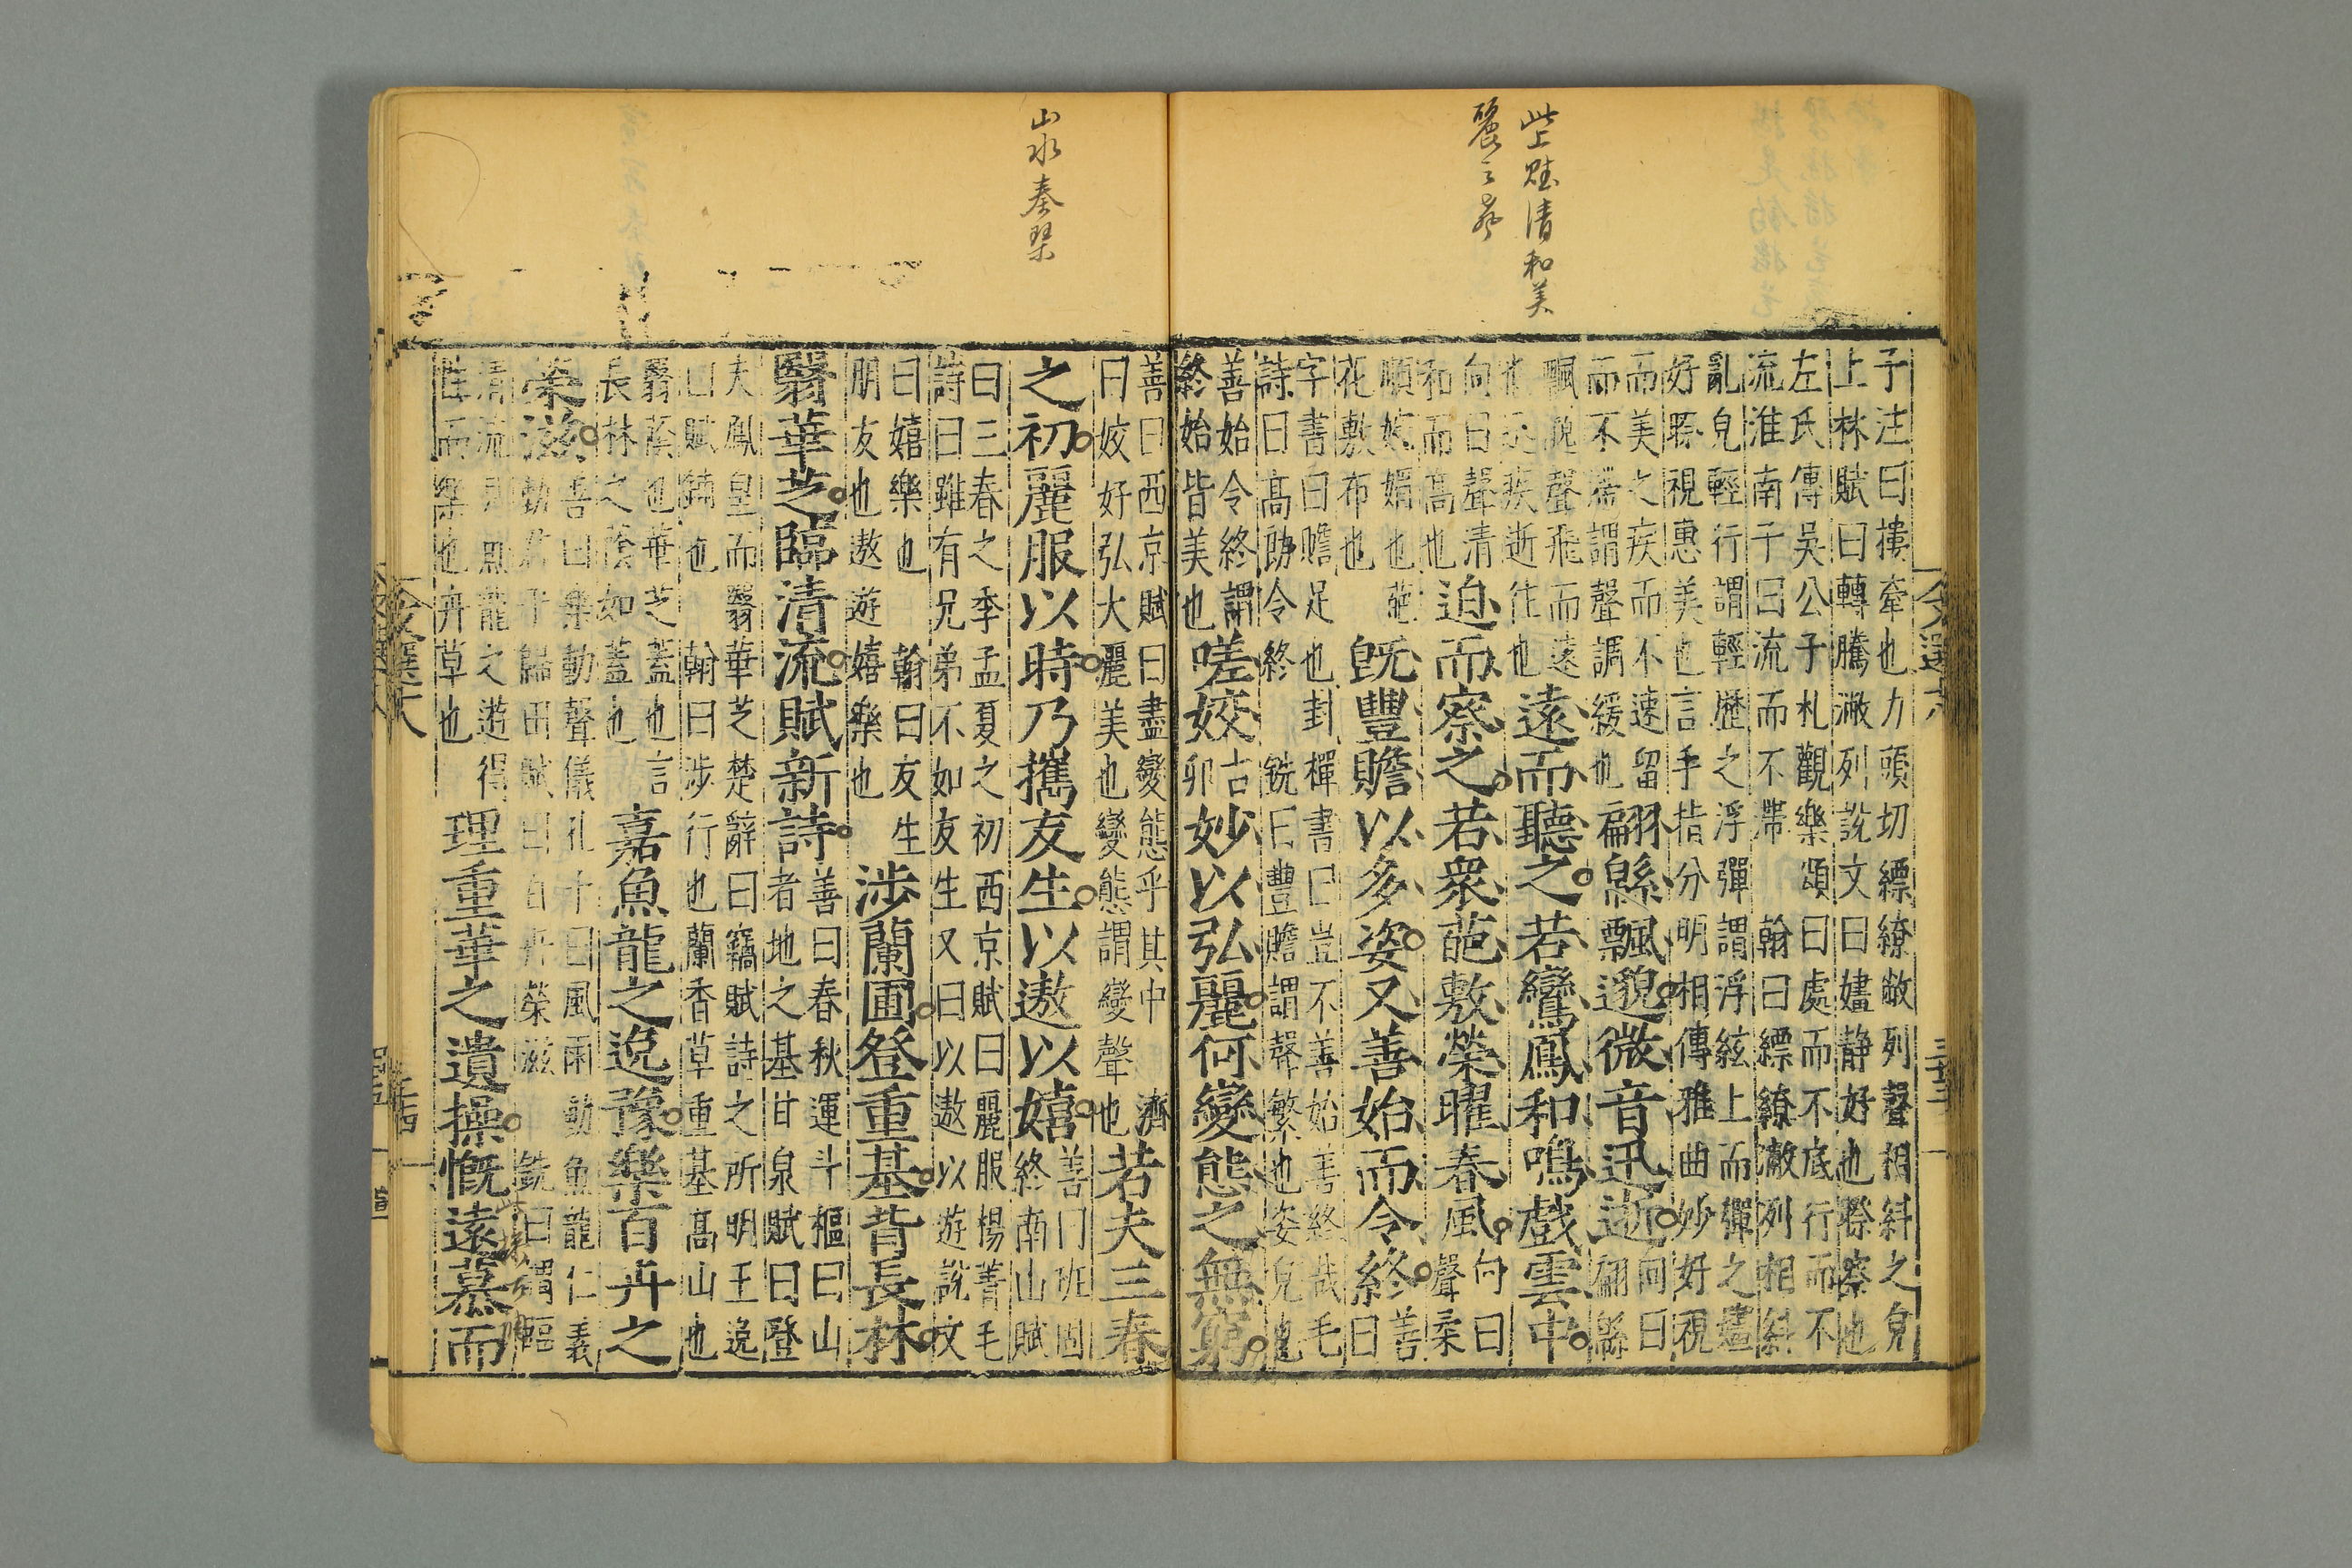 此上賦清和美
麗之聲
子注曰摟牽也力頭切繚繚敝列聲相糾之皃
上林賦曰轉騰潎列說文曰嫿静好也𥉻察也
左氏傳吳公子札觀樂頌曰處而不底行而不
流淮南子曰流而不滯 翰曰縹繚潎列相糾
亂皃輕行謂輕歷之浮彈謂浮絃上而彈之嫿
好𥉻視惠美也言手指分明相傳雅曲妙好視
而美之疾而不速留
而不滯謂聲調緩也
翩緜飄邈微音迅逝
向曰翩緜
飄邈聲飛而遠
迅疾逝往也
遠而聽之若鸞鳳和鳴戲雲中
向曰聲清
和而高也
迫而察之若衆葩敷榮曜春風
向曰聲柔
順婉媚也葩
花敷布也
既豐贍以多姿又善始而令終
善曰
字書曰贍足也封禪書曰豈不善始善終哉毛
詩曰高朗令終 銑曰豐贍謂聲繁也姿皃也
善始令終謂
終始皆美也
嗟姣
古卯
妙以弘麗何變態之無窮
山水奏琴
善曰西京賦曰盡變態乎其中 濟
曰姣好弘大麗美也變態謂變聲也
若夫三春
之初麗服以時乃攜友生以遨以嬉
善曰班固
終南山賦
曰三春之季孟夏之初西京賦曰麗服楊菁毛
詩曰雖有兄弟不如友生又曰以遨以遊說文
曰嬉樂也 翰曰友生
朋友也遨遊嬉樂也
涉蘭圃登重基背長林
翳華芝臨清流賦新詩
善曰春秋運斗樞曰山
者地之基甘泉賦曰登
夫鳳皇而翳華芝楚辭曰竊賦詩之所明王逸
曰賦鋪也 翰曰涉行也蘭香草重基高山也
翳蔭也華芝蓋也言
長林之蔭如蓋也
嘉魚龍之逸豫樂百卉之
榮滋
善曰樂動聲儀孔子曰風雨動魚龍仁義
動君子歸田賦曰百卉榮滋 銑曰謂臨
清流則魚龍之遊得
性而樂也卉草也
理重華之遺操慨遠慕而